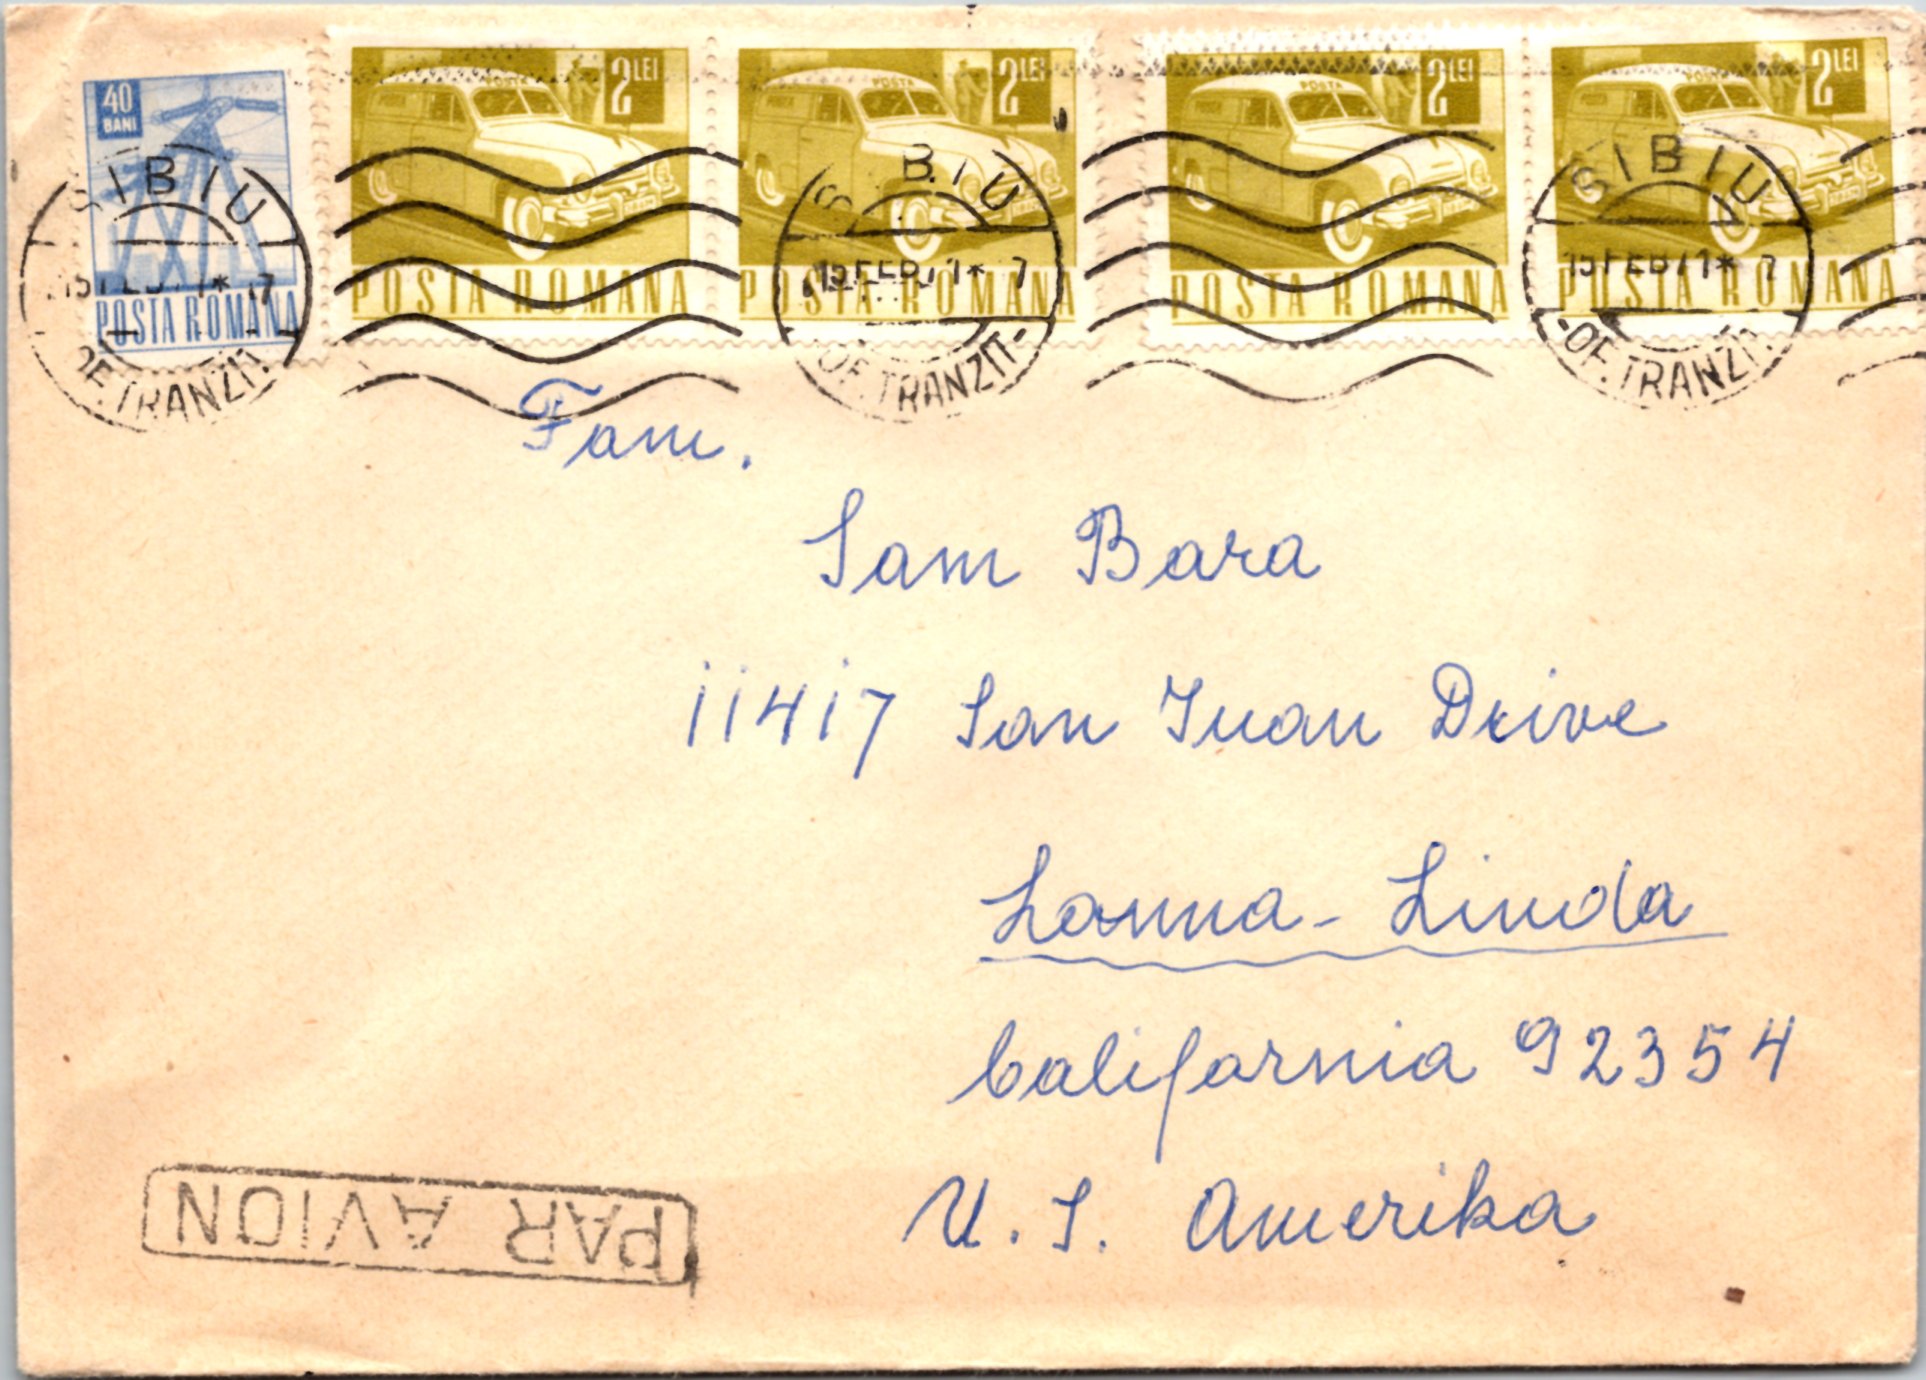 40 BANI
POSTA ROMANA
POSTA
2 LEI
POSTA ROMANA
POSTA
2 LEI
POSTA ROMANA
POSTA
2 LEI
POSTA ROMANA
POSTA
2 LEI
POSTA ROMANA
SIBIU
15 FEB 71 * 17
OF. TRANZIT
SIBIU
15 FEB 71 * 17
OF. TRANZIT-
SIBIU
15 FEB 71 * 17
-OF. TRANZIT
Fam.
Sam Bara
11417 San Juan Drive
Lomna-Linda
California 92354
U. S. Amerika
PAR AVION